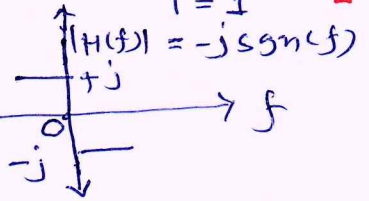 |H(f)| = -j sgn(f)
+j
f
0
-j